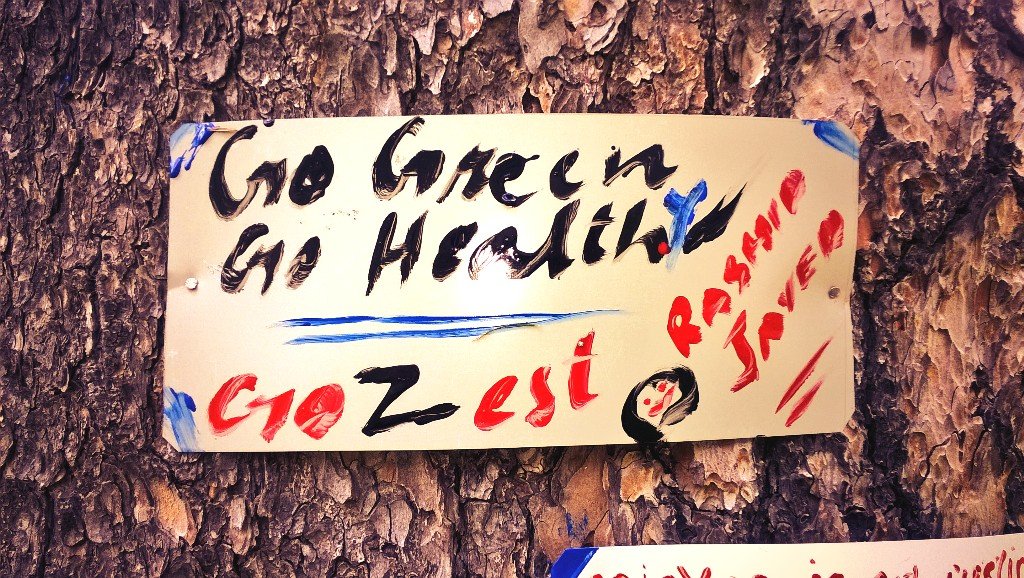 Go Green
Go Healthy
GoZest
RASHID
JAVED
is